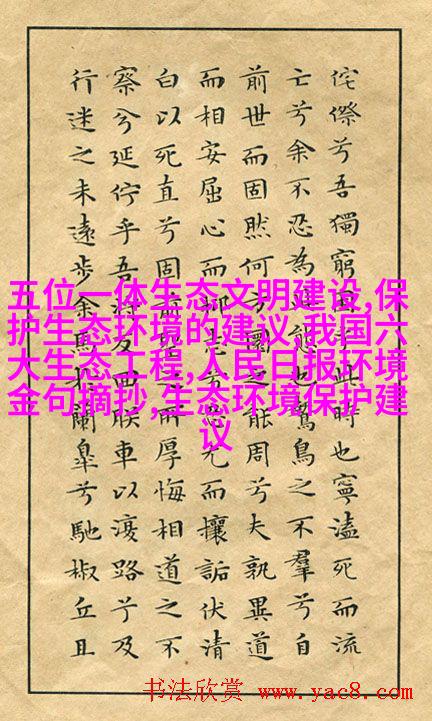 侘傺兮吾獨窮困乎此時也寧溘死而流
亡兮余不忍為此態也鷙鳥之不羣兮自
前世而固然何方圜之能周兮夫孰異道
而相安屈心而抑志兮忍尤而攘詬伏清
白以死直兮固前聖之所厚悔相道之不
察兮延佇乎吾將反回朕車以復路兮及
行迷之未遠步余馬於蘭臯兮馳椒丘且
五位一体生态文明建设,保
护生态环境的建议,我国六
大生态工程,人民日报环境
金句摘抄,生态环境保护建
议
书法欣赏 www.yac8.com